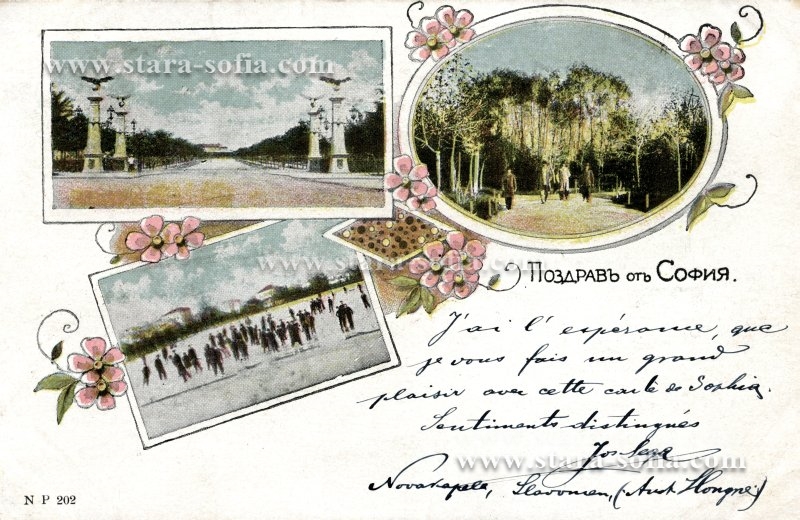 www.stara-sofia.com
www.stara-sofia.com
Поздравъ отъ София.
J'ai l'espérance, que
je vous fais un grand
plaisir avec cette carte de Sophia.
Sentiments distingués
Jos
www.stara-sofia.com
Novakapela, Slavonien, (Aust Hongrie)
N P 202